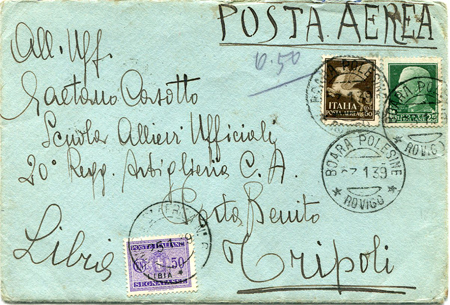 POSTA AEREA
0.50
All. Uff.
Gaetano Cosotto
Scuola Allievi Ufficiali
20° Regg. Artiglieria C. A.
Porta Benito
Libia Tripoli
ITALIA
POSTA AEREA
BOARA POLESINE
1 39
ROVIGO
POSTE ITALIANE
50
LIBIA
SEGNATASSE